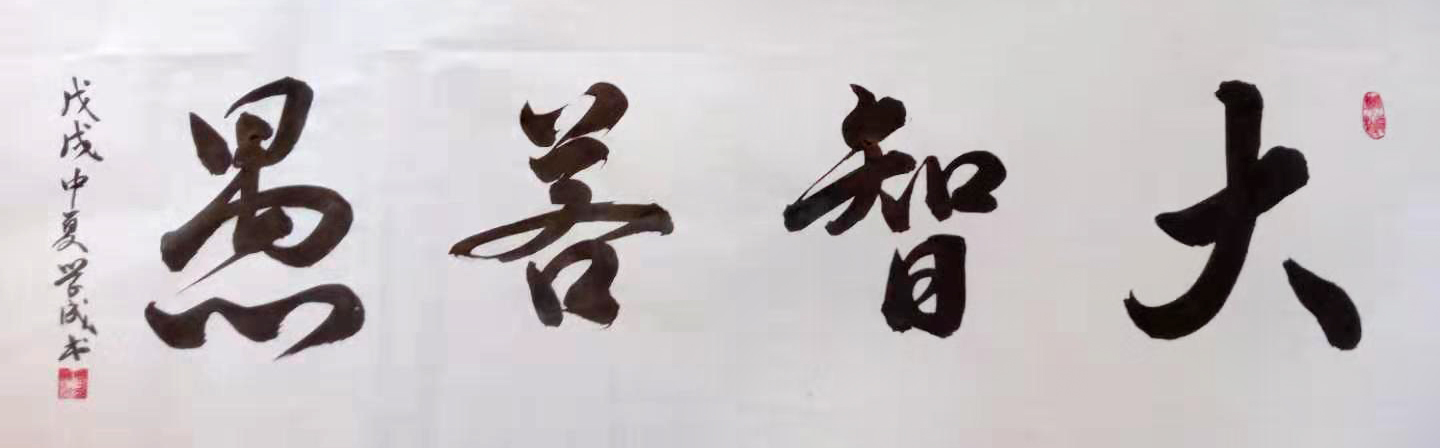 大智若愚
戊戌中夏学成书